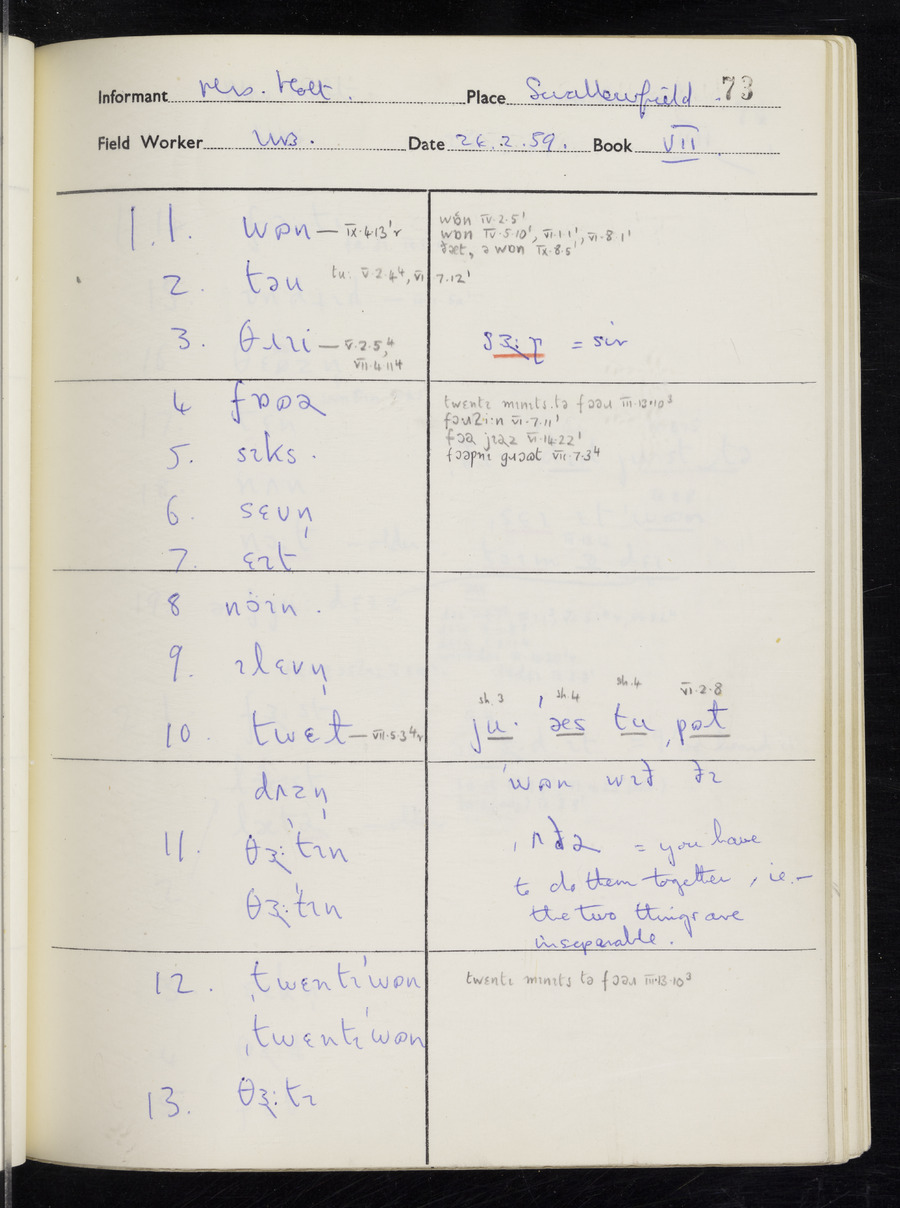 Informant Mrs. Holt. Place Swallowfield. 73
Field Worker Date 26.2.59. Book VII
1.1. wɒn — IX.4.13'r
wɒn IV.2.5'
wɒn IV.5.10', VI.1.1', VI.8.1'
ðæt, ə wɒn IX.8.5'
2. təu tu: V.2.4⁴, VI 7.12'
3. θɹɪi — V.2.5,⁴
VII.4.11⁴
= sir
4 fɒəɹ
twentɪ mɪnɪts tə fɔəɹ III.13.10³
VI.7.11'
VI.14.22'
VII.7.3⁴
5. sɪks.
6. sɛvn̩
7. ɛɪt
8 nöɪn.
9. ɪlɛvn̩
10. twɛt — VII.5.3⁴r
sh.3 , sh.4 sh.4 VI.2.8
ju· æs tu ˌpət
dɹɪzn̩
ˈwɒn wɪð ðɪ
11. θɜ:ˈtɪn
θɜ:ˈtɪn
= you have
to do them together, ie. —
the two things are
inseparable.
12. ˌtwɛntɪˈwɒn
ˌtwɛntɪˈwɒn
twentɪ mɪnɪts tə fɔəɹ III.13.10³
13. θɜ:tɪ